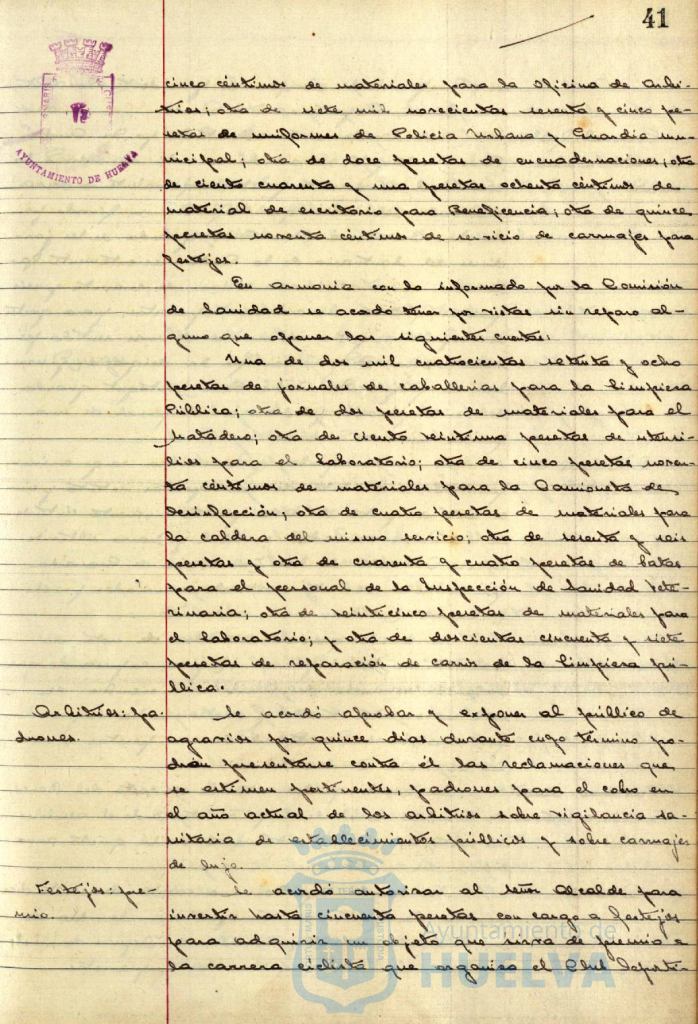 41
AYUNTAMIENTO DE HUELVA
cinco céntimos de materiales para la Oficina de Arbi-
trios; otra de siete mil novecientas sesenta y cinco pe-
setas de uniformes de Policía Urbana y Guardia mu-
nicipal; otra de doce pesetas de encuadernaciones; otra
de ciento cuarenta y una pesetas ochenta céntimos de
material de escritorio para Beneficencia; otra de quince
pesetas noventa céntimos de servicio de carruajes para
festejos.
En armonía con lo informado por la Comisión
de Sanidad se acordó tener por vistas sin reparo al-
guno que oponer las siguientes cuentas:
Una de dos mil cuatrocientas setenta y ocho
pesetas de jornales de caballerías para la limpieza
Pública; otra de dos pesetas de materiales para el
Matadero; otra de ciento veintiuna pesetas de utensi-
lios para el Laboratorio; otra de cinco pesetas noven-
ta céntimos de materiales para la Camioneta de
desinfección; otra de cuatro pesetas de materiales para
la caldera del mismo servicio; otra de sesenta y seis
pesetas y otra de cuarenta y cuatro pesetas de batas
para el personal de la Inspección de Sanidad Vete-
rinaria; otra de veinticinco pesetas de materiales para
el Laboratorio; y otra de doscientas cincuenta y siete
pesetas de reparación de carros de la limpieza pú-
blica.
Arbitrios: pa-
drones.
Se acordó aprobar y exponer al público de
agravios por quince días durante cuyo término po-
drán presentarse contra él las reclamaciones que
se estimen pertinentes, padrones para el cobro en
el año actual de los arbitrios sobre vigilancia sa-
nitaria de establecimientos públicos y sobre carruajes
de lujo.
Festejos: pre-
mio.
Se acordó autorizar al señor Alcalde para
invertir hasta cincuenta pesetas con cargo a festejos
para adquirir un objeto que sirva de premio a
la carrera ciclista que organiza el Club Deporti-
Ayuntamiento de
HUELVA